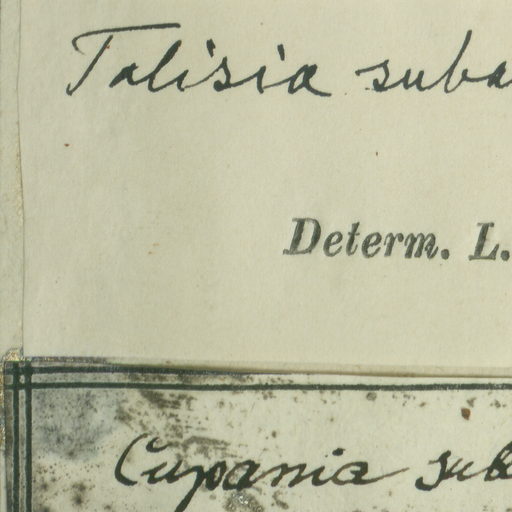 Talisia suba
Determ. L.
Cupania sub